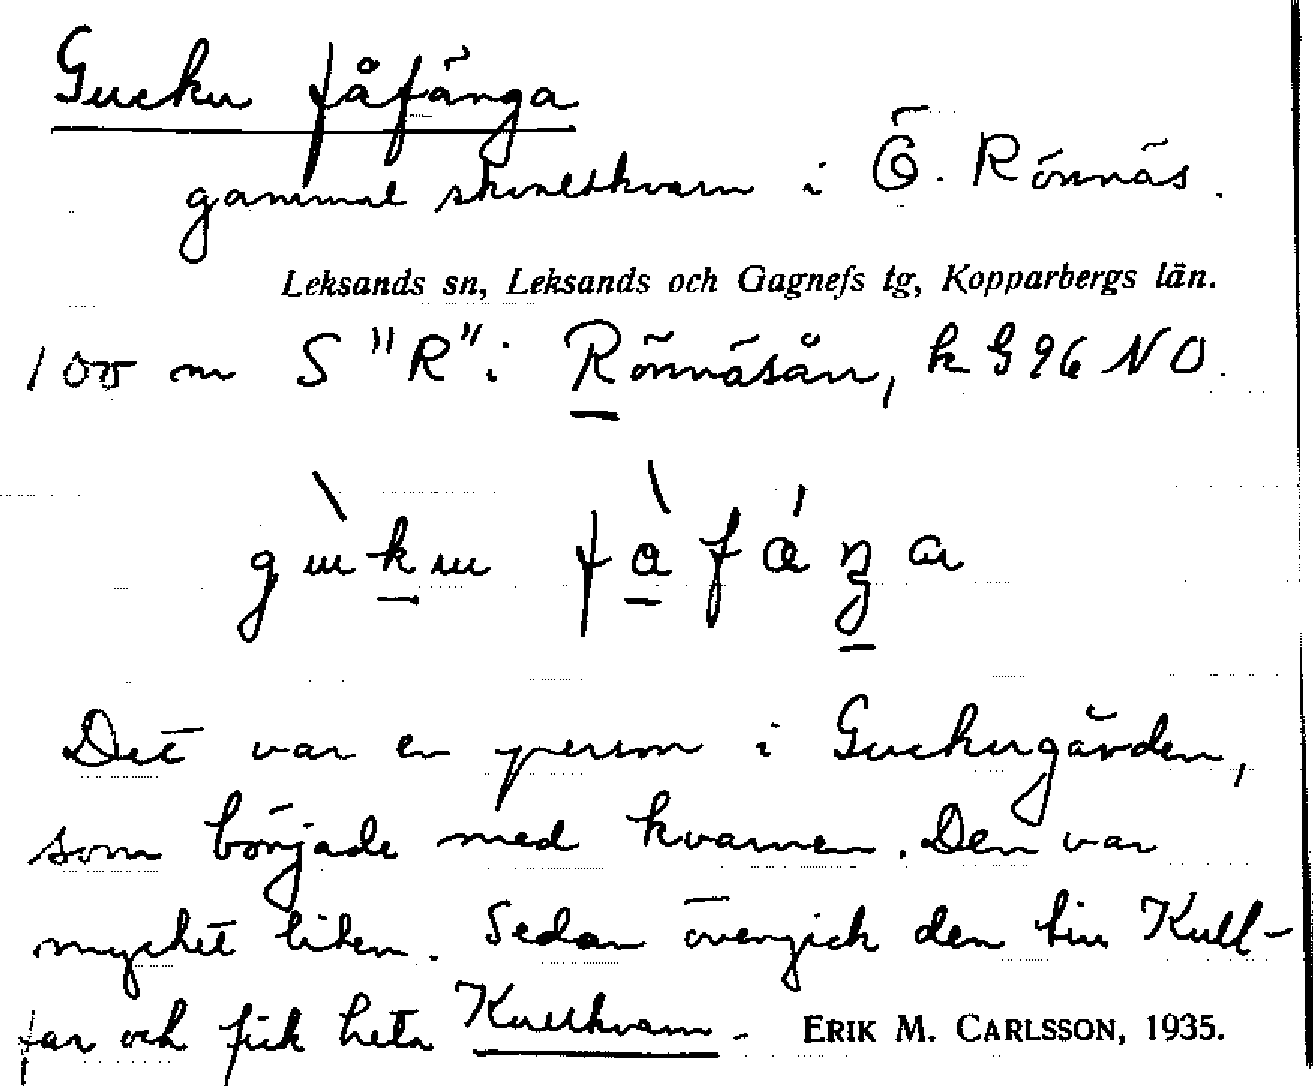 Gucku fåfänga
gammal skvaltkvarn i Ö. Rönnäs.
Leksands sn, Leksands och Gagnefs tg, Kopparbergs län.
100 m S "R" i Rönnäsån, k G 96 NO.
Det var en person i Guckugården,
som började med kvarnen. Den var
mycket liten. Sedan övergick den till Kull-
far och fick heta Kullkvarn. ERIK M. CARLSSON, 1935.